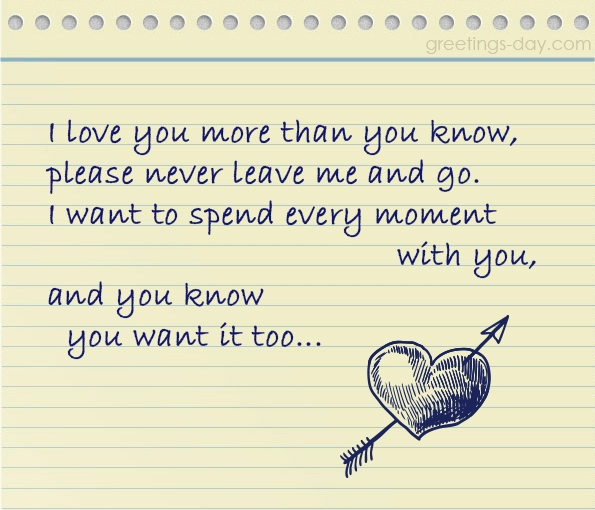 greetings-day.com
I love you more than you know,
please never leave me and go.
I want to spend every moment
with you,
and you know
you want it too...